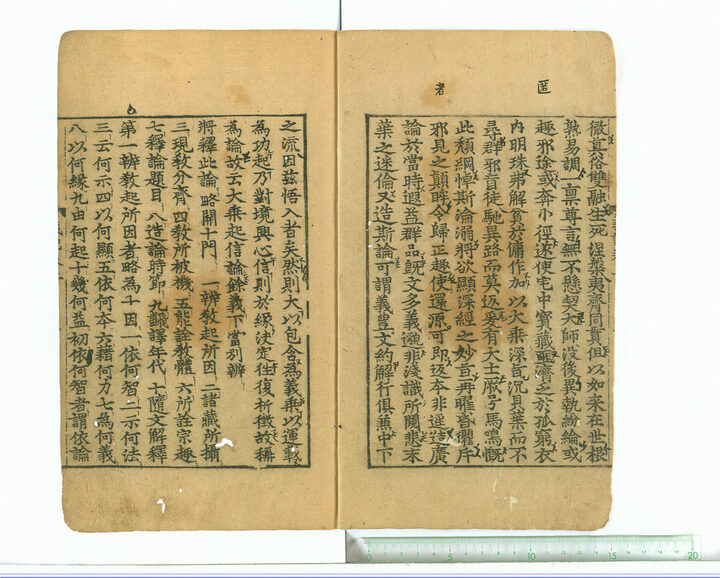 匿
者
微真俗雙融生死涅槃夷齊同貫但以如來在世根
熟易調一稟尊言無不懸契大師沒後異執紛綸或
趣邪途或奔小徑遂使宅中寶藏匿濟乏於孤窮衣
內明珠弗解貧於傭作加以大乘深旨沉貝葉而不
尋群邪盲徒馳異路而莫返爰有大士厥号馬鳴慨
此頹綱悼斯淪溺將欲顯深經之妙旨再曜昏衢斥
邪見之顛眸令歸正趣使還源可即返本非遥造廣
論於當時遐益群品旣文多義邈非淺識所闚悲末
葉之迷倫又造斯論可謂義豊文約解行俱兼中下
之流因茲悟入者矣然則大以包含為義乘以運載
為功起乃對境興心信則於緣決定往復析徵故稱
為論故云大乘起信論餘義下當別辨
將釋此論略開十門一辨教起所因二諸藏所攝
三現教分齊四教所被機五能詮教體六所詮宗趣
七釋論題目八造論時節九飜譯年代十隨文解釋
第一辨教起所因者略為十因一依何智二示何法
三云何示四以何顯五依何本六藉何力七為何義
八以何緣九由何起十幾何益初依何智者謂依論
0 5 10 15 20